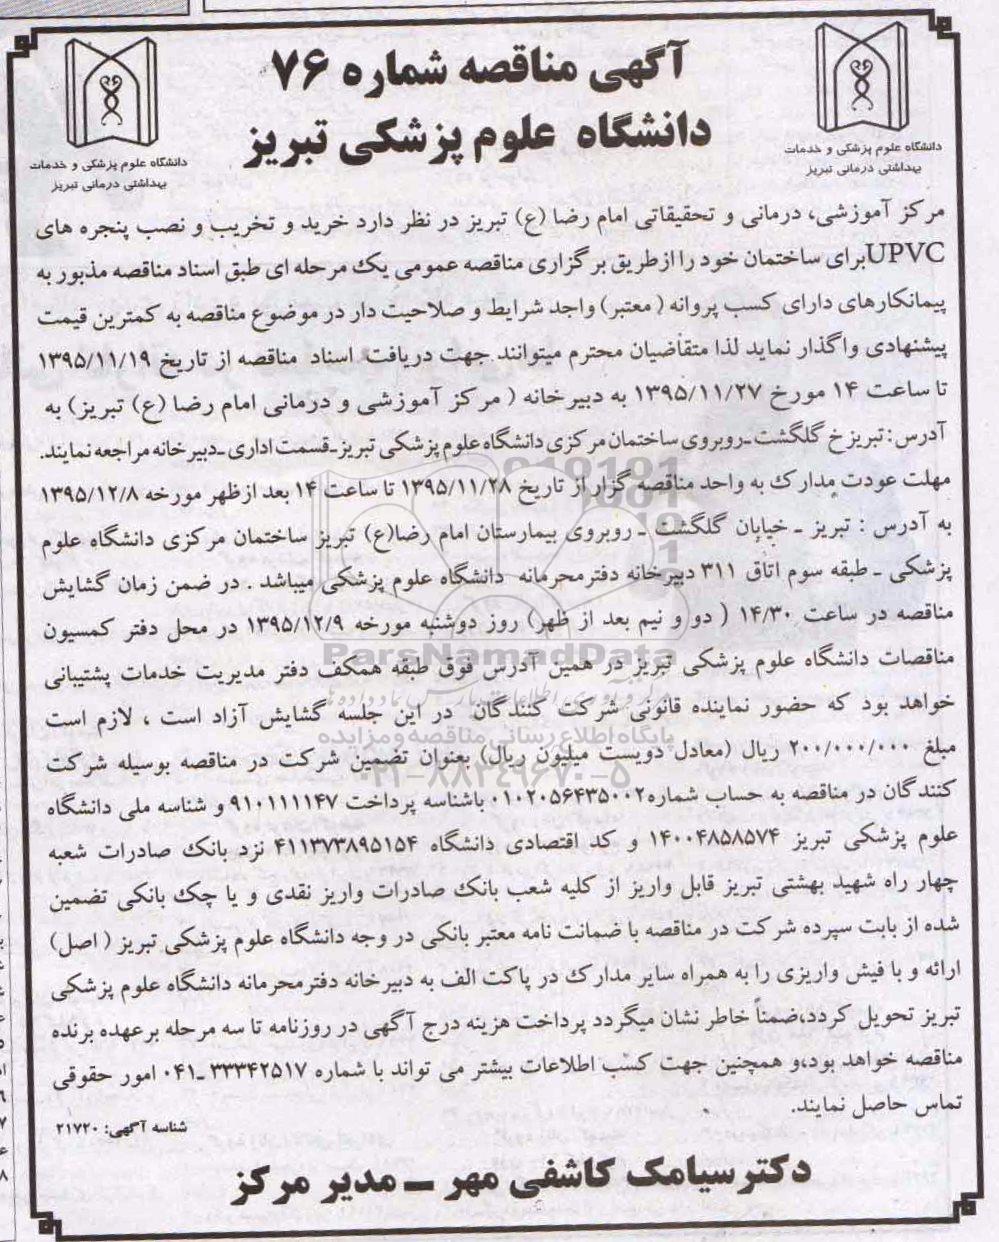 آگهی مناقصه شماره ۷۶
دانشگاه علوم پزشکی تبریز
دانشگاه علوم پزشکی و خدمات
بهداشتی درمانی تبریز
دانشگاه علوم پزشکی و خدمات
بهداشتی درمانی تبریز
مرکز آموزشی، درمانی و تحقیقاتی امام رضا (ع) تبریز در نظر دارد خرید و تخریب و نصب پنجره های
UPVCبرای ساختمان خود را ازطریق برگزاری مناقصه عمومی یک مرحله ای طبق اسناد مناقصه مذبور به
پیمانکارهای دارای کسب پروانه ( معتبر) واجد شرایط و صلاحیت دار در موضوع مناقصه به کمترین قیمت
پیشنهادی واگذار نماید لذا متقاضیان محترم میتوانند جهت دریافت اسناد مناقصه از تاریخ ۱۳۹۵/۱۱/۱۹
تا ساعت ۱۴ مورخ ۱۳۹۵/۱۱/۲۷ به دبیرخانه ( مرکز آموزشی و درمانی امام رضا (ع) تبریز) به
آدرس: تبریز خ گلگشت ـروبروی ساختمان مرکزی دانشگاه علوم پزشکی تبریز ـقسمت اداری ـدبیرخانه مراجعه نمایند.
مهلت عودت مدارک به واحد مناقصه گزار از تاریخ ۱۳۹۵/۱۱/۲۸ تا ساعت ۱۴ بعد ازظهر مورخه ۱۳۹۵/۱۲/۸
به آدرس : تبریز ـ خیابان گلگشت ـ روبروی بیمارستان امام رضا(ع) تبریز ساختمان مرکزی دانشگاه علوم
پزشکی ـ طبقه سوم اتاق ۳۱۱ دبیرخانه دفترمحرمانه دانشگاه علوم پزشکی میباشد . در ضمن زمان گشایش
مناقصه در ساعت ۱۴/۳۰ ( دو و نیم بعد از ظهر) روز دوشنبه مورخه ۱۳۹۵/۱۲/۹ در محل دفتر کمسیون
مناقصات دانشگاه علوم پزشکی تبریز در همین آدرس فوق طبقه همکف دفتر مدیریت خدمات پشتیبانی
خواهد بود که حضور نماینده قانونی شرکت کنندگان در این جلسه گشایش آزاد است ، لازم است
مبلغ ۲۰۰/۰۰۰/۰۰۰ ریال (معادل دویست میلیون ریال) بعنوان تضمین شرکت در مناقصه بوسیله شرکت
کنندگان در مناقصه به حساب شماره۰۱۰۲۰۵۶۴۳۵۰۰۲ باشناسه پرداخت ۹۱۰۱۱۱۱۴۷ و شناسه ملی دانشگاه
علوم پزشکی تبریز ۱۴۰۰۴۸۵۸۵۷۴ و کد اقتصادی دانشگاه ۴۱۱۳۷۳۸۹۵۱۵۴ نزد بانک صادرات شعبه
چهار راه شهید بهشتی تبریز قابل واریز از کلیه شعب بانک صادرات واریز نقدی و یا چک بانکی تضمین
شده از بابت سپرده شرکت در مناقصه با ضمانت نامه معتبر بانکی در وجه دانشگاه علوم پزشکی تبریز ( اصل)
ارائه و با فیش واریزی را به همراه سایر مدارک در پاکت الف به دبیرخانه دفترمحرمانه دانشگاه علوم پزشکی
تبریز تحویل گردد،ضمناً خاطر نشان میگردد پرداخت هزینه درج آگهی در روزنامه تا سه مرحله برعهده برنده
مناقصه خواهد بود،و همچنین جهت کسب اطلاعات بیشتر می تواند با شماره ۳۳۳۴۲۵۱۷ ـ۰۴۱ امور حقوقی
تماس حاصل نمایند.
شناسه آگهی: ۲۱۷۲۰
دکترسیامک کاشفی مهر ــ مدیر مرکز
ParsNamadData
پایگاه اطلاع رسانی مناقصه و مزایده
۰۲۱-۸۸۳۴۹۶۷۰-۵